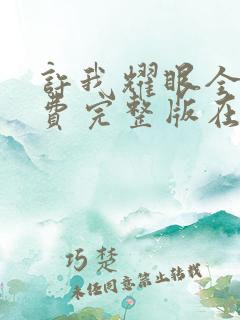 許我耀眼全
費完整版在
巧楚
未经同意禁止转载